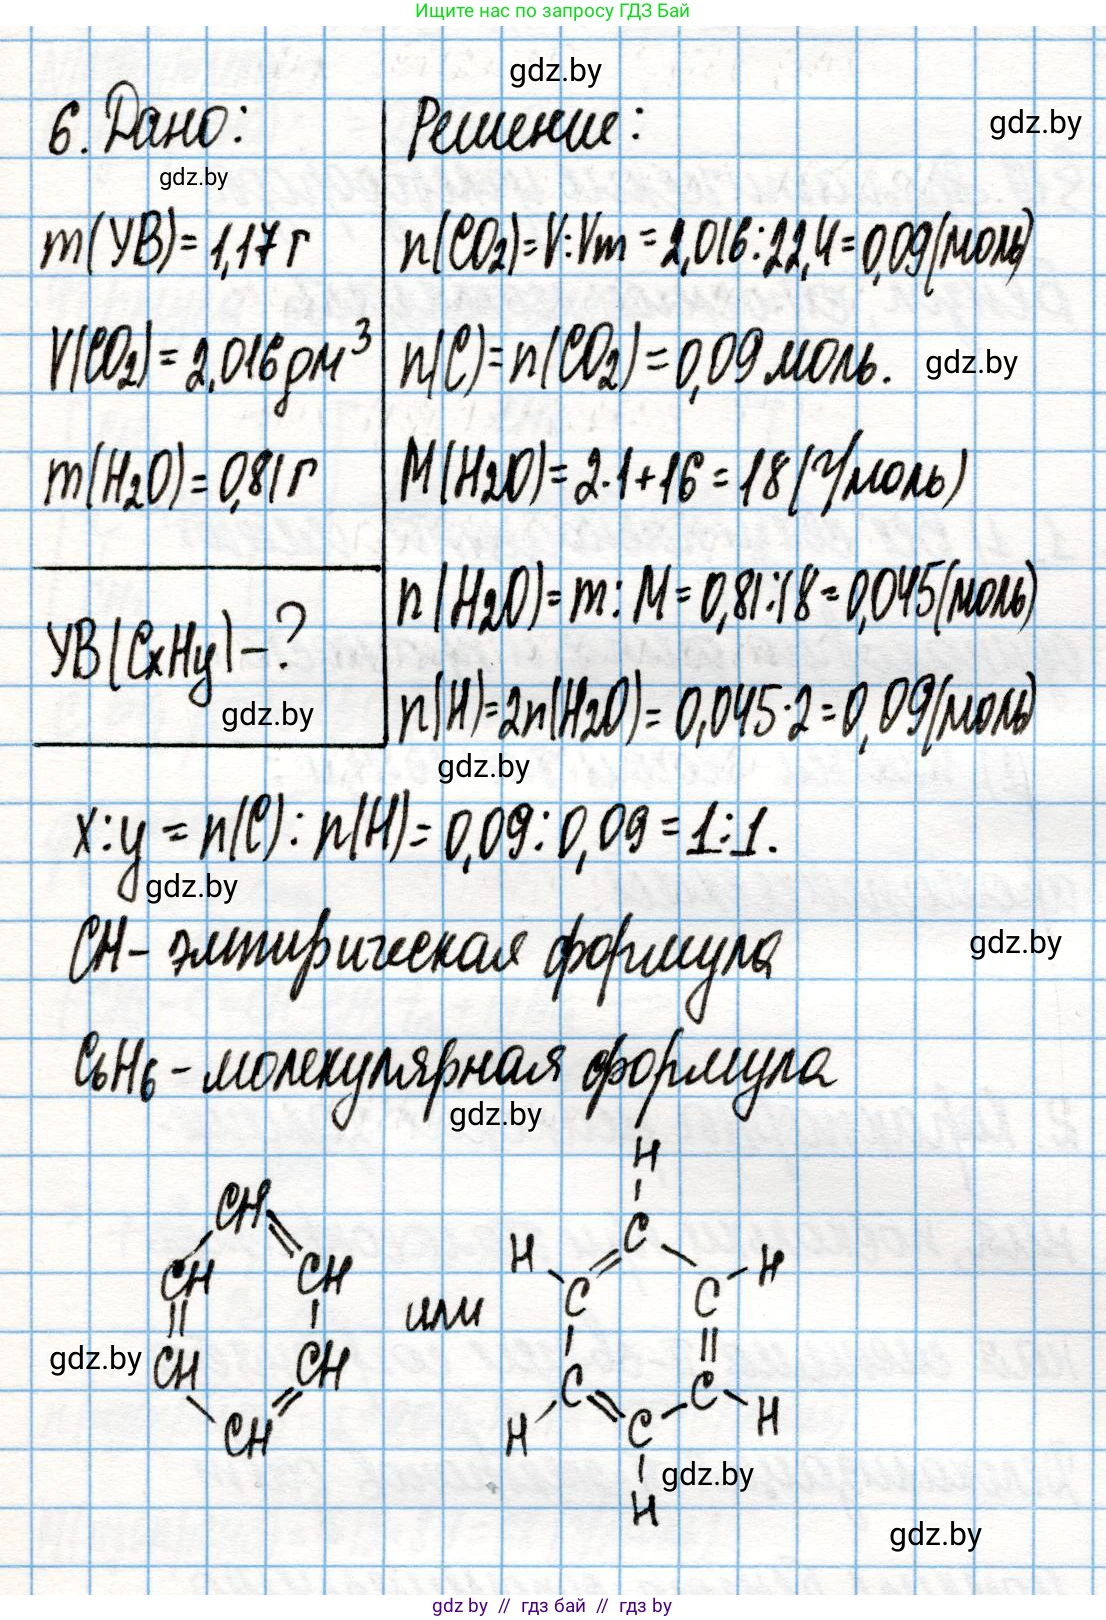 Ищите нас по запросу ГДЗ Бай
gdz.by
6. Дано:
Решение:
gdz.by
gdz.by
m(УВ)=1,17г
n(CO₂)=V:Vm=2,016:22,4=0,09(моль)
V(CO₂)=2,016дм³
n(C)=n(CO₂)=0,09 моль.
gdz.by
m(H₂O)=0,81г
M(H₂O)=2·1+16=18(г/моль)
n(H₂O)=m:M=0,81:18=0,045(моль)
УВ(CxHy)-?
gdz.by
n(H)=2n(H₂O)=0,045·2=0,09(моль)
gdz.by
x:y=n(C):n(H)=0,09:0,09=1:1.
gdz.by
CH- эмпирическая формула
gdz.by
C₆H₆-молекулярная формула
gdz.by
H
CH
C
H
H
CH
CH
или
C
C
gdz.by
CH
CH
C
C
CH
H
C
H
gdz.by
H
gdz.by
gdz.by // гдз бай // гдз by